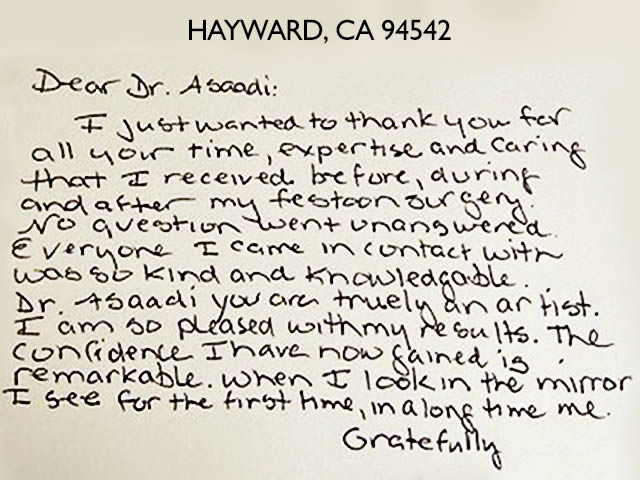 HAYWARD, CA 94542
Dear Dr. Asaadi:
I just wanted to thank you for
all your time, expertise and caring
that I received before, during
and after my festoon surgery.
No question went unanswered.
Everyone I came in contact with
was so kind and knowledgable.
Dr. Asaadi you are truely an artist.
I am so pleased with my results. The
confidence I have now gained is
remarkable. When I look in the mirror
I see for the first time, in a long time me.
Gratefully